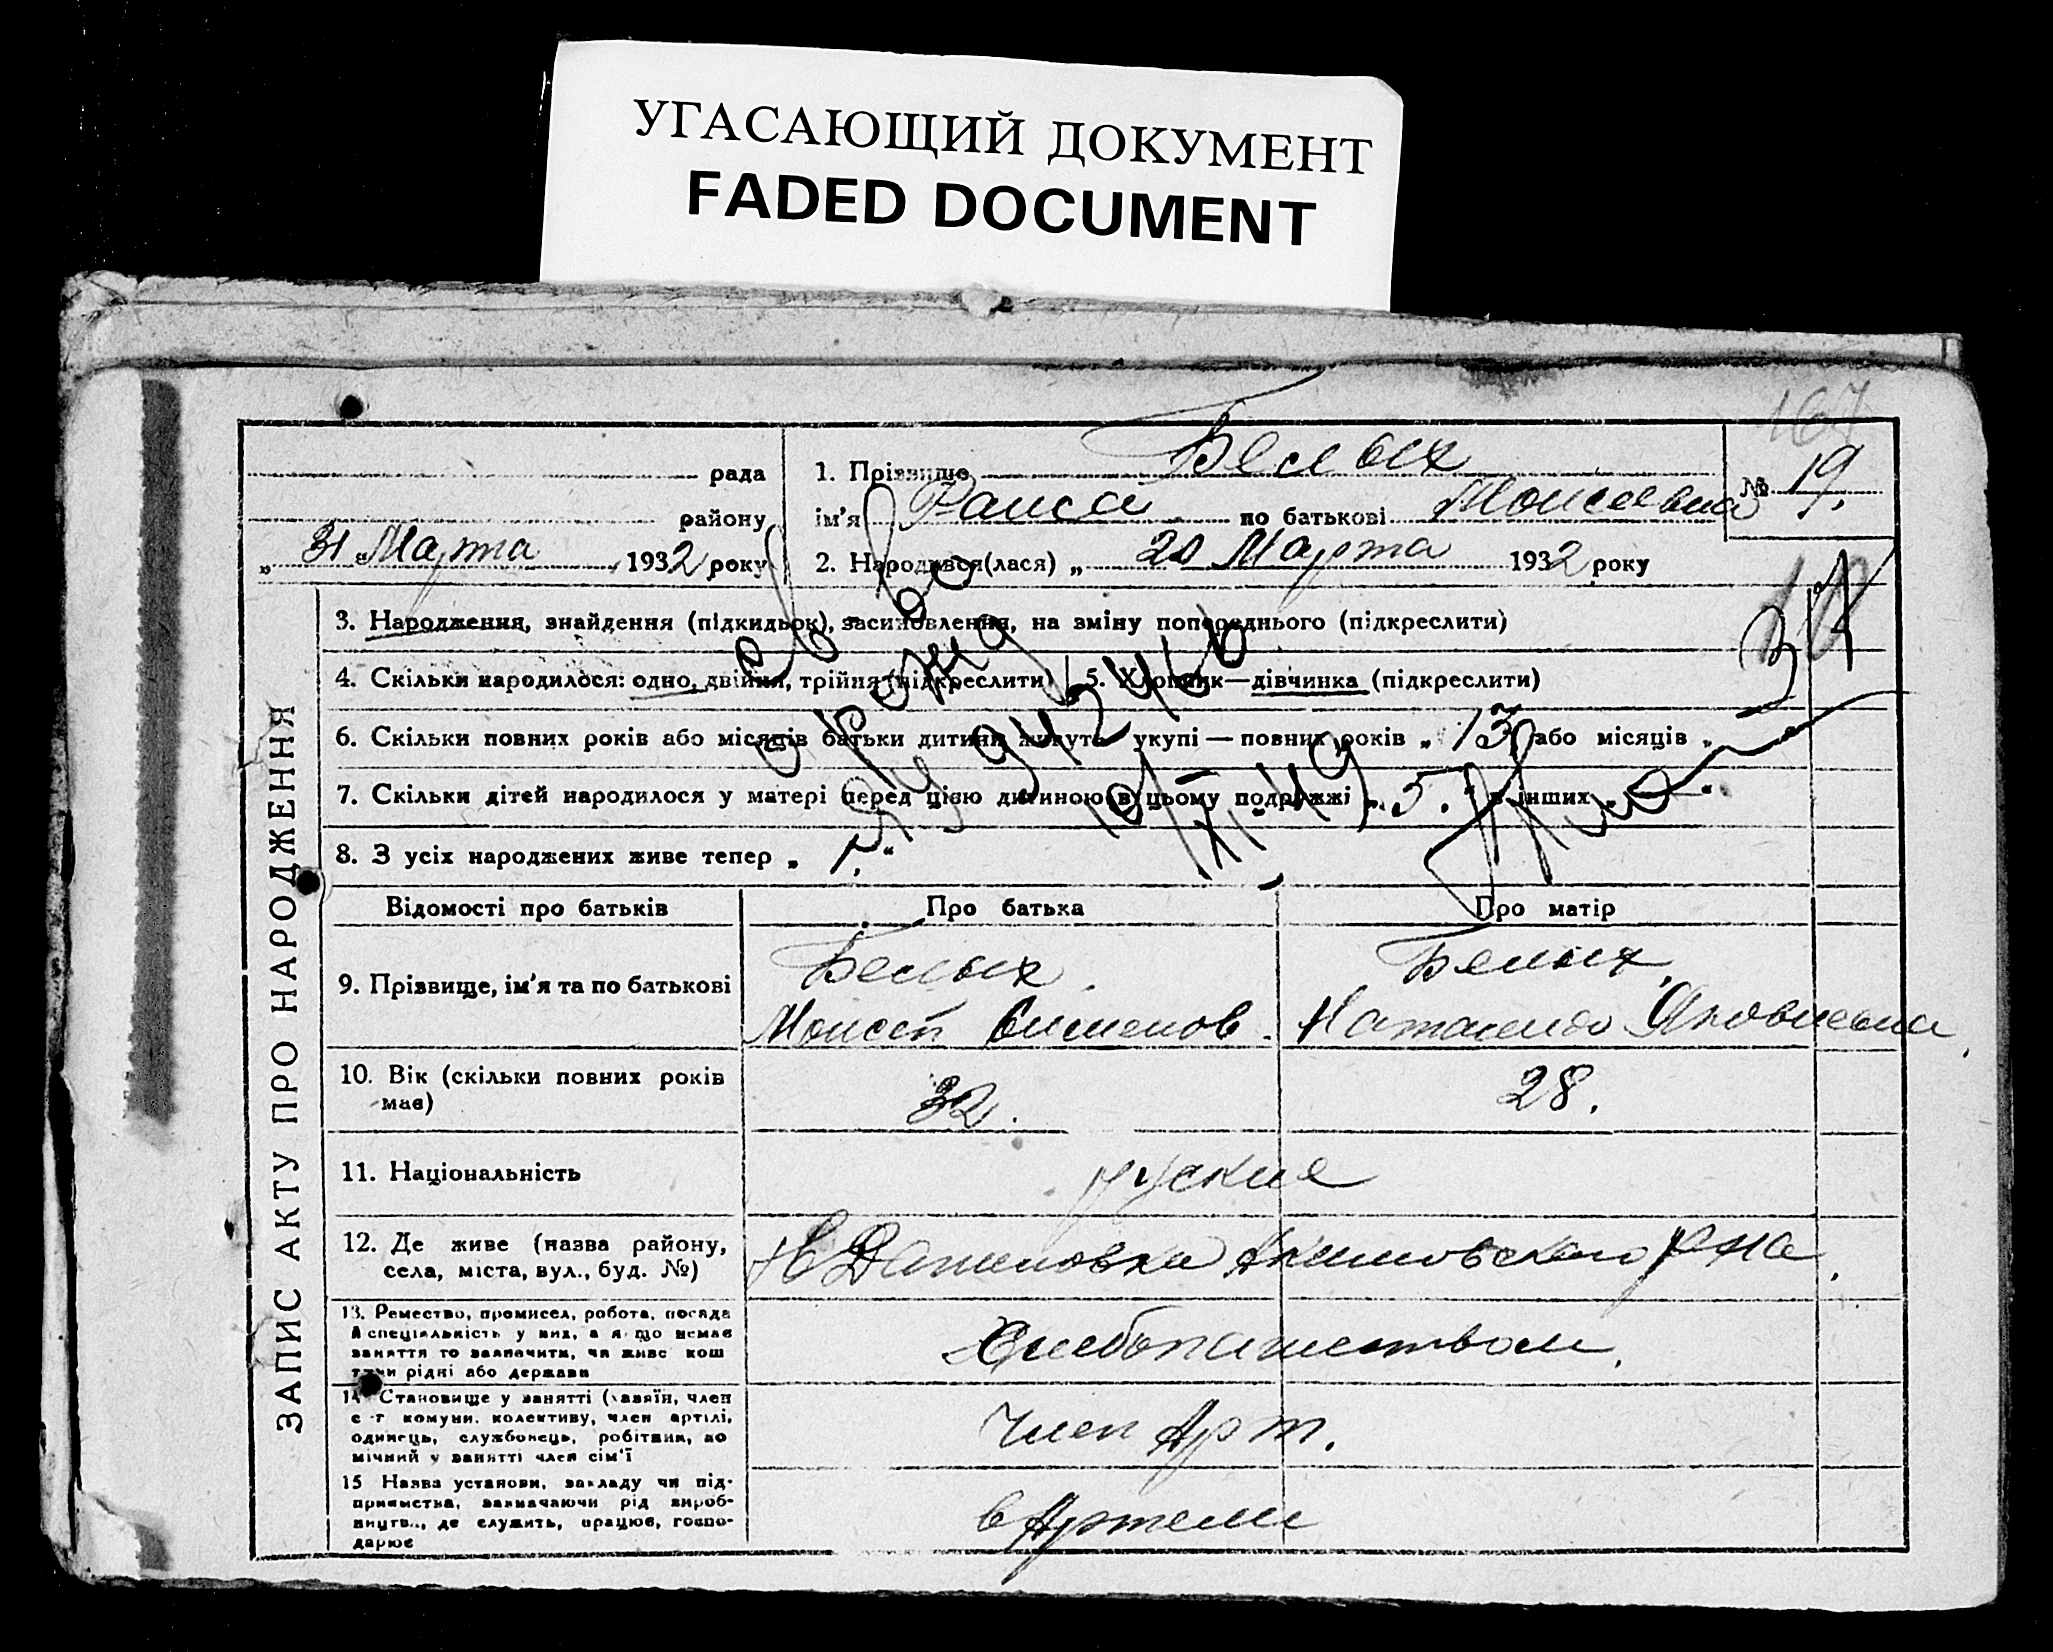 УГАСАЮЩИЙ ДОКУМЕНТ
FADED DOCUMENT
167
рада
району
„ 31 „ Марта 1932 року
1. Прізвище Белых
ім'я Раиса по батькові Моисеевна
№ 19.
2. Народився(лася) „ 20 Марта 1932 року
ЗАПИС АКТУ ПРО НАРОДЖЕННЯ
3. Народження, знайдення (підкидьок), засиновлення, на зміну попереднього (підкреслити)
4. Скільки народилося: одно, двійня, трійня (підкреслити) 5. Хлопчик—дівчинка (підкреслити)
6. Скільки повних років або місяців батьки дитини живуть укупі — повних років „ 13 „ або місяців „
7. Скільки дітей народилося у матері перед цією дитиною в цьому подружжі „ 5. „ в інших „
8. З усіх народжених живе тепер „
св-во
о рожд
Відомості про батьків
Про батька
Про матір
9. Прізвище, ім'я та по батькові
Белых.
Моисей Сименов.
Белых,
Наталия Яковлевна,
10. Вік (скільки повних років
має)
32.
28.
11. Національність
руские
12. Де живе (назва району,
села, міста, вул., буд. №)
Н Даниловка Акимовского р-на,
13. Ремество, промисел, робота, посада
й спеціяльність у них, а якщо немає
заняття то зазначити, чи живе кош
тами рідні або держави
Хлебопашеством.
14 Становище у занятті (хазяїн, член
с-г комуни, колективу, член артілі,
одинець, службонець, робітник, по
мічний у занятті член сім'ї
Член Арт.
15 Назва установи, закладу чи під-
приємства, зазначаючи рід вироб-
ництв.., де служить, працює, госпо-
дарює
в Артели